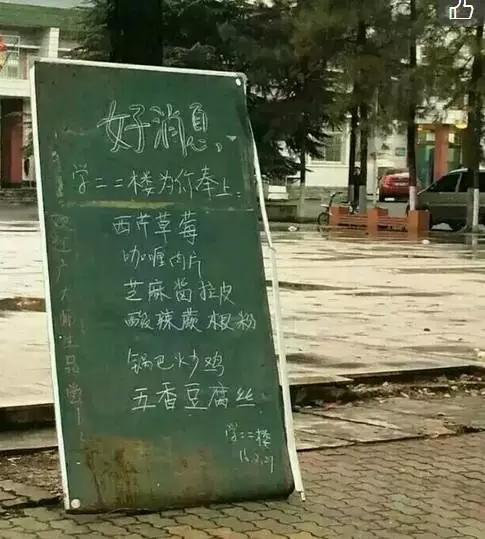 好消息,
学二二楼为你奉上:
西芹草莓
咖喱肉片
芝麻酱拉皮
酸辣蕨根粉
锅巴炒鸡
五香豆腐丝
学二二楼
欢迎广大师生品尝!